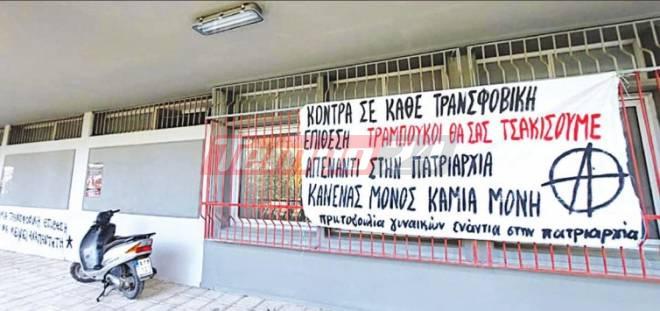 ΚΟΝΤΡΑ ΣΕ ΚΑΘΕ ΤΡΑΝΣΦΟΒΙΚΗ
ΕΠΙΘΕΣΗ ΤΡΑΜΠΟΥΚΟΙ ΘΑ ΣΑΣ ΤΣΑΚΙΣΟΥΜΕ
ΑΠΕΝΑΝΤΙ ΣΤΗΝ ΠΑΤΡΙΑΡΧΙΑ
ΚΑΝΕΝΑΣ ΜΟΝΟΣ ΚΑΜΙΑ ΜΟΝΗ
πρωτοβουλία γυναικών ενάντια στην πατριαρχία
ΕΠΙΘΕΣΗ
ΑΝΑΠΑΝΤΗΤΗ